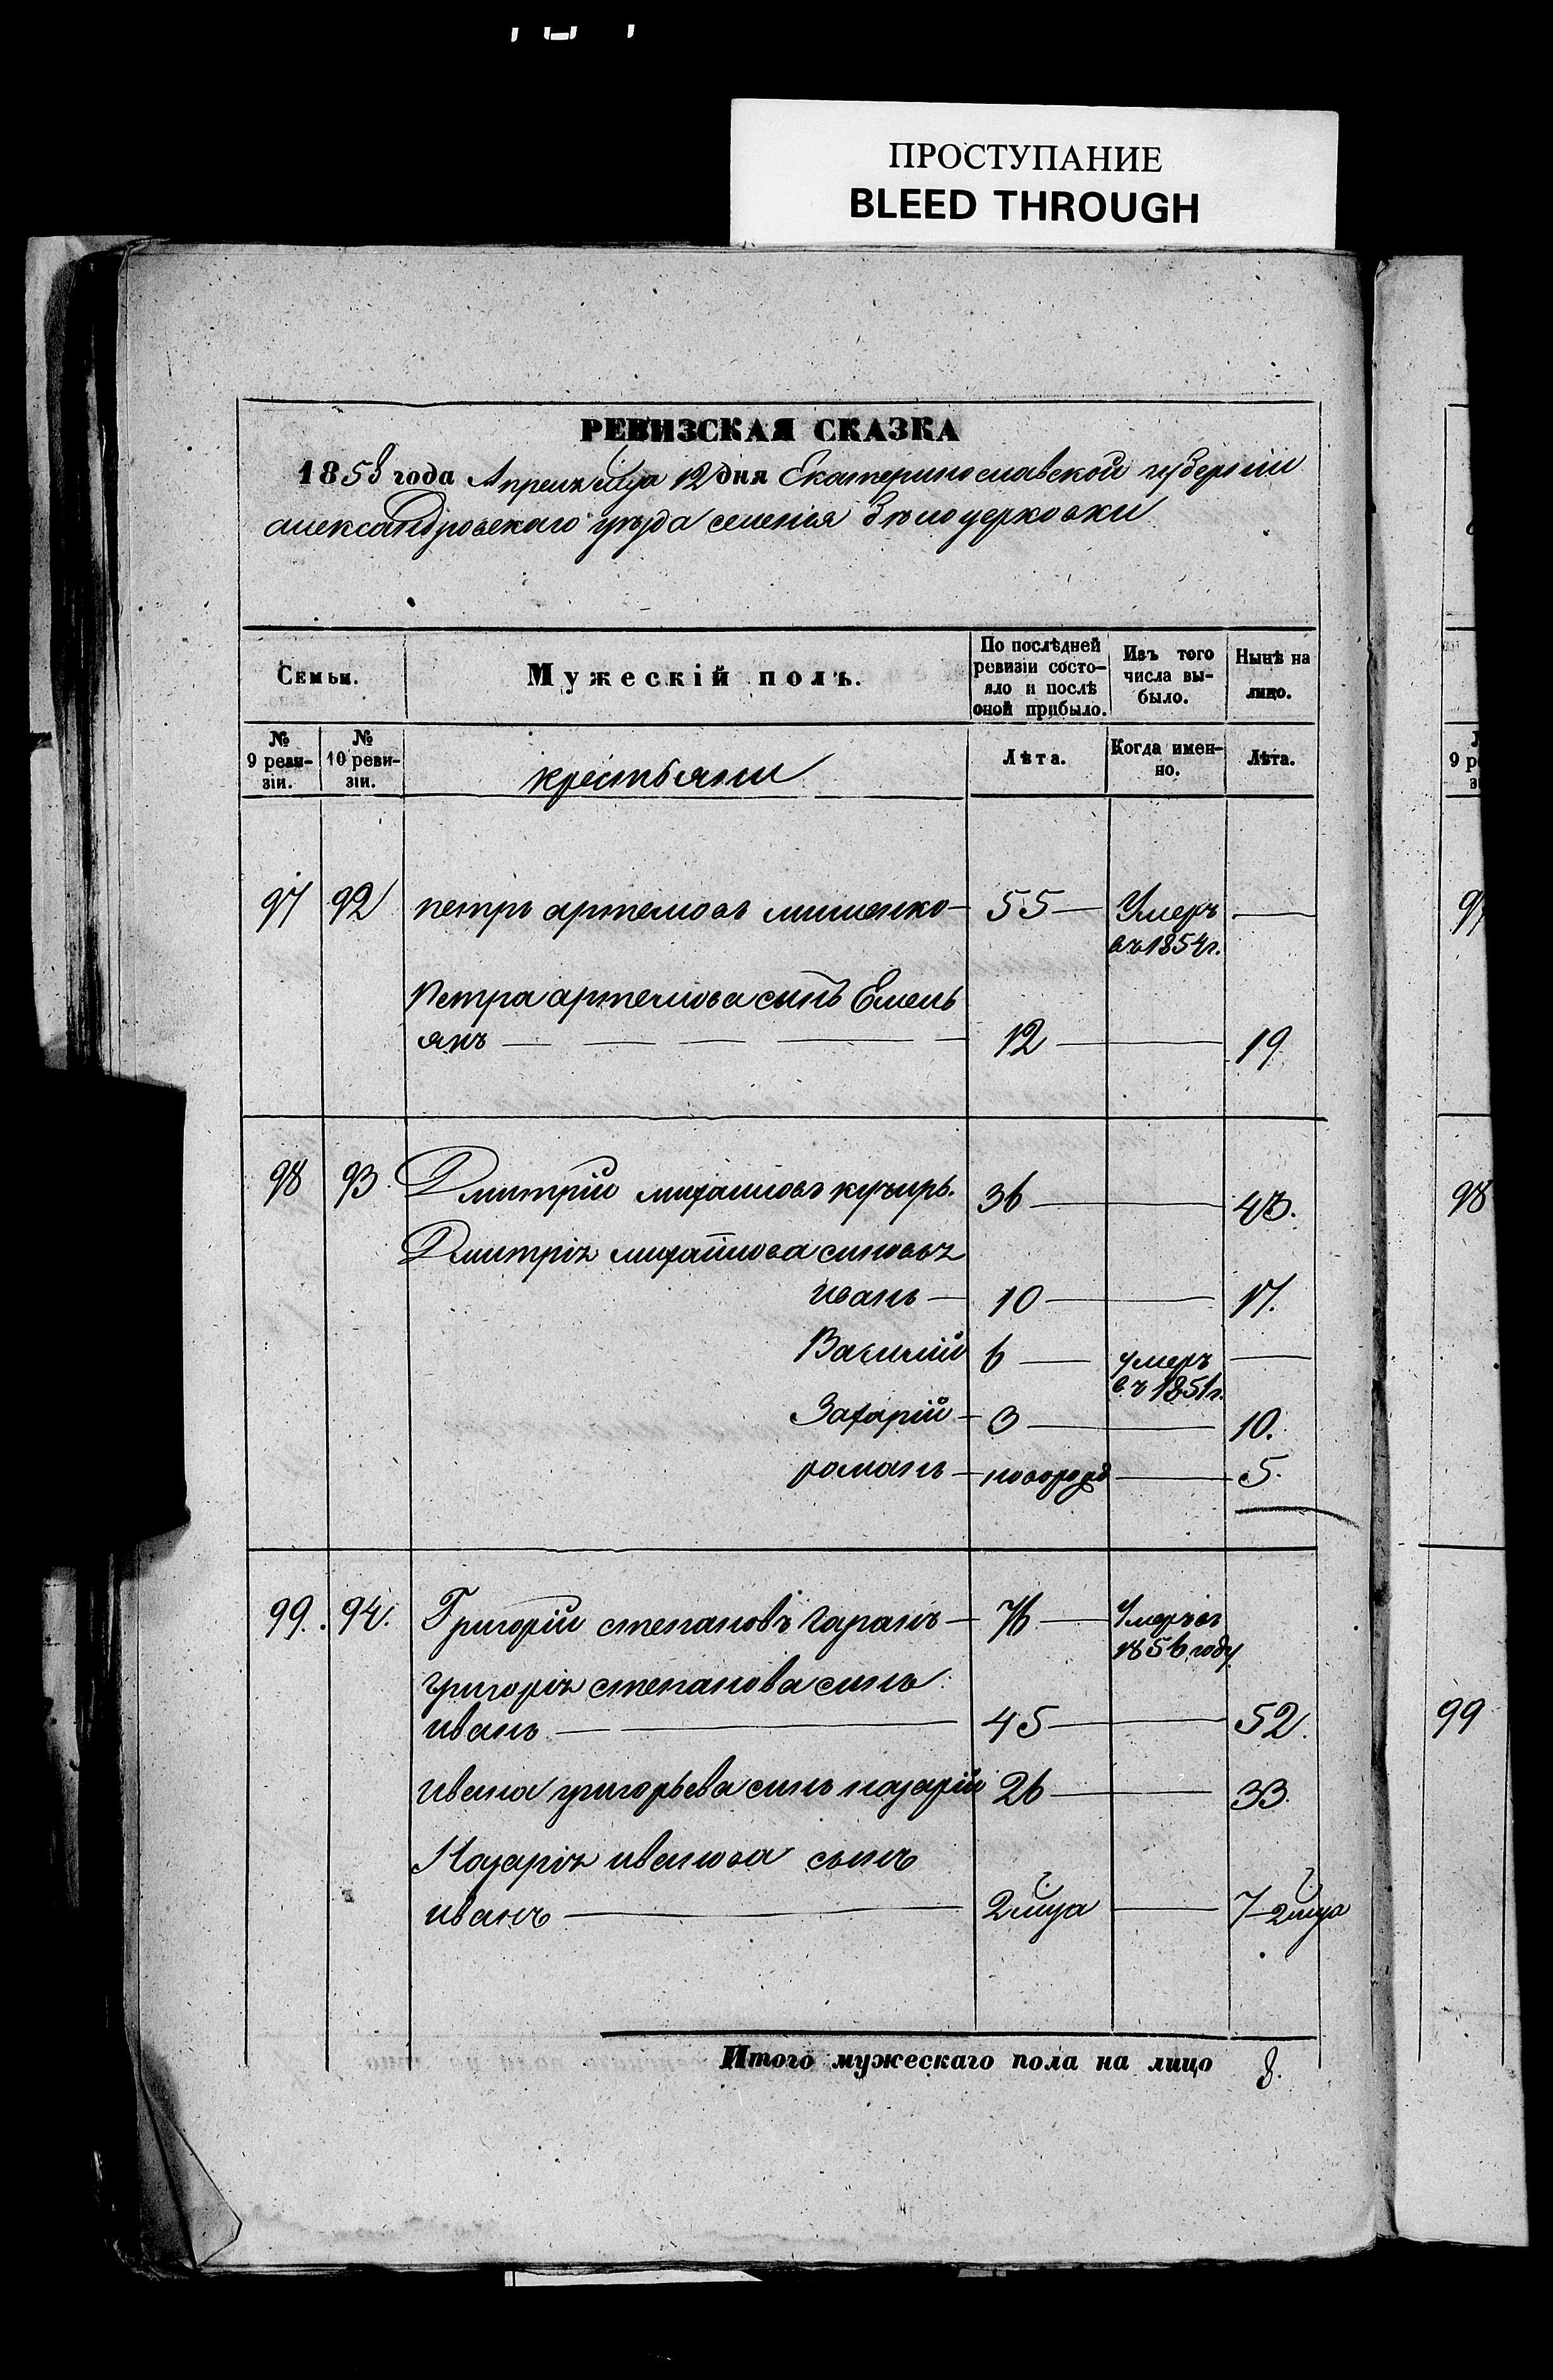 ПРОСТУПАНИЕ
BLEED THROUGH
РЕВИЗСКАЯ СКАЗКА
1858 года Апреля мца 12 дня Екатеринославской губернии
александровскаго уезда селения Белоцерковки
Семьи.
Мужескій полъ.
По послѣдней ревизіи состо-
яло и послѣ оной прибыло.
Изъ того числа вы-
было.
Нынѣ на лицо.
№ 9 реви-
зіи.
№ 10 реви-
зіи.
крестьяни
Лѣта.
Когда имен-
но.
Лѣта.
97 92 петръ артемовъ мишенко 55 Умеръ
въ 1854 г.
Петра артемова сынъ Емель
янъ 12 19
98 93 Дмитрій михайловъ кучиръ. 36 43.
Дмитрія михайлова синовья
иванъ 10 17.
Василій 6 умеръ
въ 1851 г.
Захарій 3 10.
романъ новорожд 5.
99. 94. Григорій степановъ Гаранъ 76 Умеръ въ
1856 году
григорія степанова синъ
иванъ 45 52.
ивана григорьева синъ назарій 26 33.
Назарія иванова сынъ
иванъ 2 мца 7 2 мца
Итого мужескаго пола на лицо 8.
9 ре
97
98
99